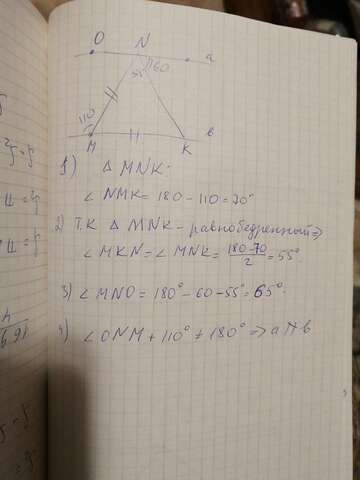 O N a
60
55
110
M K в
1) Δ MNK:
∠ NMK = 180 - 110 = 70°
2) Т.К Δ MNK - равнобедренный ⇒
∠ MKN = ∠ MNK = 180-70/2 = 55°
3) ∠ MNO = 180° - 60 - 55° = 65°
4) ∠ ONM + 110° ≠ 180° ⇒ a ∦ в